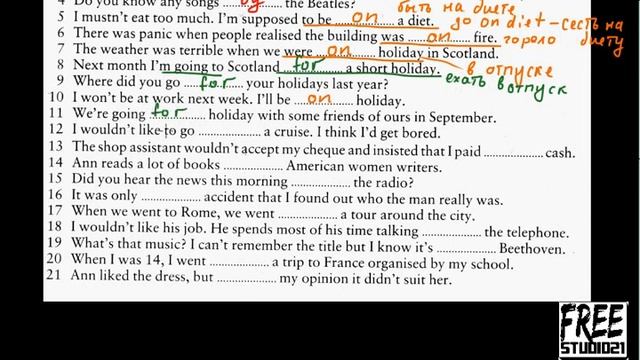 4 Do you know any songs by the Beatles? быть на диете
5 I mustn't eat too much. I'm supposed to be on a diet. go on diet – сесть на диету
6 There was panic when people realised the building was on fire. горело
7 The weather was terrible when we were on holiday in Scotland.
в отпуске
8 Next month I'm going to Scotland for a short holiday.
ехать в отпуск
9 Where did you go for your holidays last year?
10 I won't be at work next week. I'll be on holiday.
11 We're going for holiday with some friends of ours in September.
12 I wouldn't like to go .................. a cruise. I think I'd get bored.
13 The shop assistant wouldn't accept my cheque and insisted that I paid .................. cash.
14 Ann reads a lot of books .................. American women writers.
15 Did you hear the news this morning .................. the radio?
16 It was only .................. accident that I found out who the man really was.
17 When we went to Rome, we went .................. a tour around the city.
18 I wouldn't like his job. He spends most of his time talking .................. the telephone.
19 What's that music? I can't remember the title but I know it's .................. Beethoven.
20 When I was 14, I went .................. a trip to France organised by my school.
21 Ann liked the dress, but .................. my opinion it didn't suit her.
FREE
STUDIO21